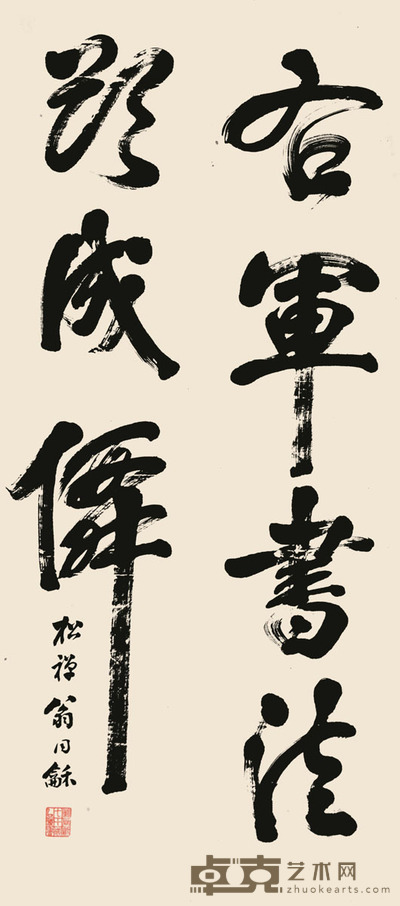 右軍書法
欲成
松禪翁同龢
卓克艺术网
zhuokearts.com